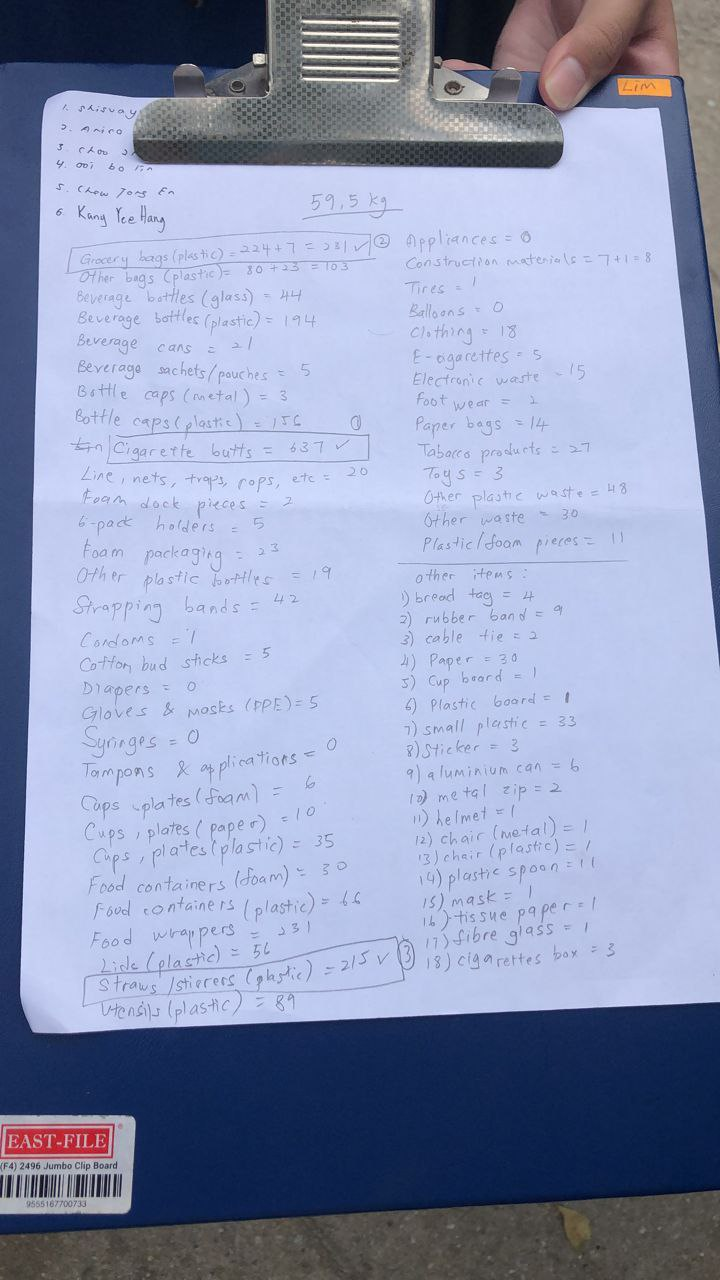 LIM
1. Shisuay
2. Anina
3. Choo
4. Ooi bo lin
5. Chow Tong En
6. Kang Yee Hang
59,5 kg
Grocery bags (plastic) = 224 + 7 = 231 ✓ ②
Other bags (plastic) = 80 + 23 = 103
Beverage bottles (glass) = 44
Beverage bottles (plastic) = 194
Beverage cans = 21
Beverage sachets/pouches = 5
Bottle caps (metal) = 3
Bottle caps (plastic) = 156 ①
Cigarette butts = 637 ✓
Line, nets, traps, rops, etc = 20
Foam dock pieces = 2
6-pack holders = 5
Foam packaging = 23
Other plastic bottles = 19
Strapping bands = 42
Condoms = 1
Cotton bud sticks = 5
Diapers = 0
Gloves & masks (PPE) = 5
Syringes = 0
Tampons & applications = 0
Cups, plates (foam) = 6
Cups, plates (paper) = 10
Cups, plates (plastic) = 35
Food containers (foam) = 30
Food containers (plastic) = 66
Food wrappers = 231
Lids (plastic) = 56
Straws/stierers (plastic) = 215 ✓ ③
Utensils (plastic) = 89
Appliances = 0
Construction materials = 7 + 1 = 8
Tires = 1
Balloons = 0
Clothing = 18
E-cigarettes = 5
Electronic waste = 15
Foot wear = 2
Paper bags = 14
Tabacco products = 27
Toys = 3
Other plastic waste = 48
Other waste = 30
Plastic/foam pieces = 11
other items :
1) bread tag = 4
2) rubber band = 9
3) cable tie = 2
4) Paper = 30
5) Cup board = 1
6) Plastic board = 1
7) small plastic = 33
8) Sticker = 3
9) aluminium can = 6
10) metal zip = 2
11) helmet = 1
12) chair (metal) = 1
13) chair (plastic) = 1
14) plastic spoon = 11
15) mask = 1
16) tissue paper = 1
17) fibre glass = 1
18) cigarettes box = 3
EAST-FILE
(F4) 2496 Jumbo Clip Board
9555167700733